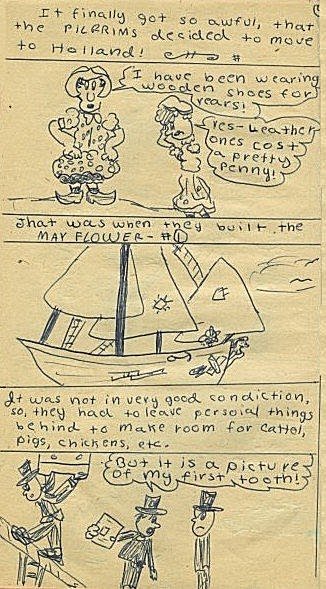 It finally got so awful, that
the PILGRIMS decided to move
to Holland!
I have been wearing
wooden shoes for
years!
Yes-Leather
ones cost
a pretty
penny!
That was when they built the
MAYFLOWER-#1
It was not in very good condiction,
so, they had to leave persoial things
behind to make room for cattel,
pigs, chickens, etc.
But it is a picture
of my first tooth!